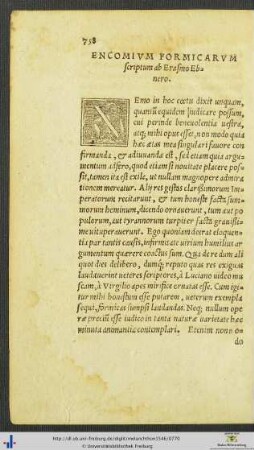 758
ENCOMIVM FORMICARVM
scriptum ab Erasmo Eb-
nero.
NEmo in hoc coetu dixit unquam,
quantũ equidem iudicare possum,
cui perinde beneuolentia uestra,
atq; mihi opus esset, non modo quia
haec aetas mea singulari fauore con
firmanda, & adiuuanda est, sed etiam quia argu-
mentum assero, quod etiam si nouitate placere pos-
sit, tamen ita est exile, ut nullam magnopere admira
tionem mereatur. Alij res gestas clarissimorum Im-
peratorum recitarunt, & tum honeste facta sum-
morum hominum, dicendo ornauerunt, tum aut po
pulorum, aut tyrannorum turpiter facta grauissi-
me uituperauerunt. Ego quoniam deerat eloquen-
tia par tantis causis, infirmitate uirium humilius ar
gumentum quaerere coactus sum. Qua de re dum ali
quot dies delibero, dumq; reputo quas res exiguas
laudauerint ueteres scriptores, à Luciano uideo mu
scam, à Virgilio apes mirifice ornatas esse. Cum igi-
tur mihi honestum esse putarem, ueterum exempla
sequi, formicas sumpsi laudandas. Neq; nullum ope
rae precium esse iudico in tanta naturae uarietate haec
minuta animantia contemplari. Etenim nono
do
http://dl.ub.uni-freiburg.de/diglit/melanchthon1546/0770
© Universitätsbibliothek Freiburg